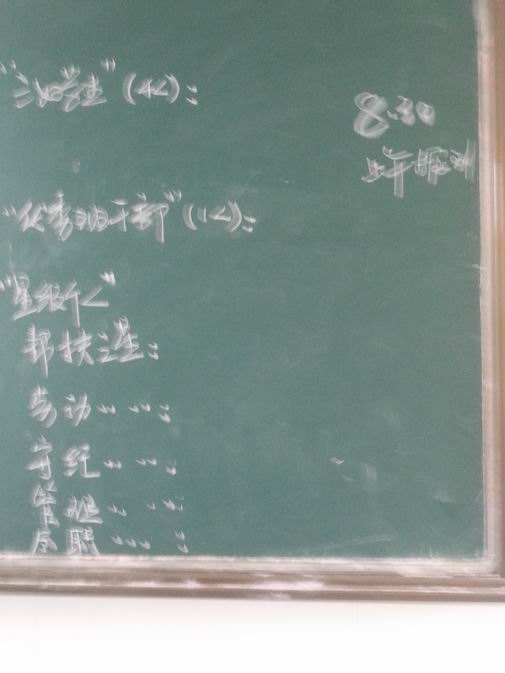 "三好学生"(4人):
8:30
上午照到
"优秀班干部"(1人):
"星级个人"
帮扶之星:
劳动〃〃:
守纪〃〃:
管班〃〃:
尽职〃〃: